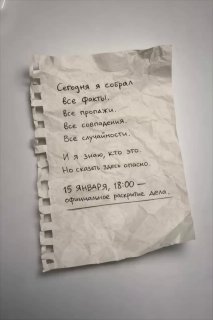 Сегодня я собрал
все факты.
Все пропажи.
Все совпадения.
Все случайности.
И я знаю, кто это.
Но сказать здесь опасно.
15 ЯНВАРЯ, 18:00 —
официальное раскрытие дела.